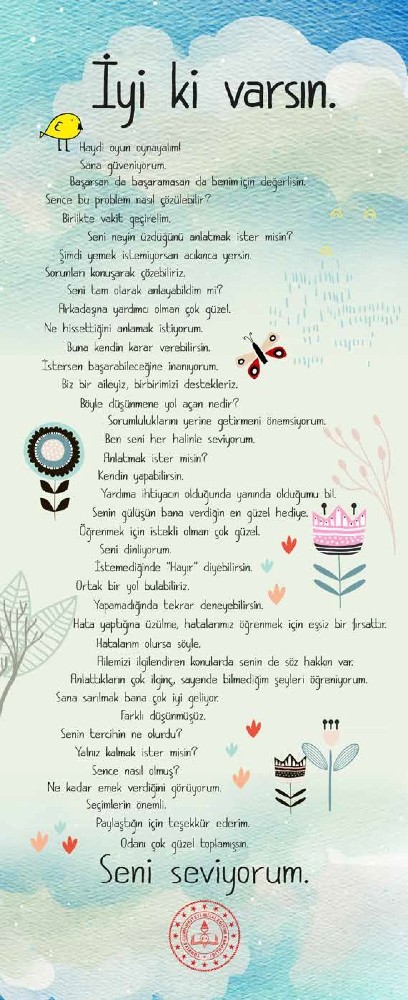 İyi ki varsın.
Haydi oyun oynayalım!
Sana güveniyorum.
Başarsan da başaramasan da benim için değerlisin.
Sence bu problem nasıl çözülebilir?
Birlikte vakit geçirelim.
Seni neyin üzdüğünü anlatmak ister misin?
Şimdi yemek istemiyorsan acıkınca yersin.
Sorunları konuşarak çözebiliriz.
Seni tam olarak anlayabildim mi?
Arkadaşına yardımcı olman çok güzel.
Ne hissettiğini anlamak istiyorum.
Buna kendin karar verebilirsin.
İstersen başarabileceğine inanıyorum.
Biz bir aileyiz, birbirimizi destekleriz.
Böyle düşünmene yol açan nedir?
Sorumluluklarını yerine getirmeni önemsiyorum.
Ben seni her halinle seviyorum.
Anlatmak ister misin?
Kendin yapabilirsin.
Yardıma ihtiyacın olduğunda yanında olduğumu bil.
Senin gülüşün bana verdiğin en güzel hediye.
Öğrenmek için istekli olman çok güzel.
Seni dinliyorum.
İstemediğinde "Hayır" diyebilirsin.
Ortak bir yol bulabiliriz.
Yapamadığında tekrar deneyebilirsin.
Hata yaptığına üzülme, hatalarımız öğrenmek için eşsiz bir fırsattır.
Hatalarım olursa söyle.
Ailemizi ilgilendiren konularda senin de söz hakkın var.
Anlattıkların çok ilginç, sayende bilmediğim şeyleri öğreniyorum.
Sana sarılmak bana çok iyi geliyor.
Farklı düşünmüşüz.
Senin tercihin ne olurdu?
Yalnız kalmak ister misin?
Sence nasıl olmuş?
Ne kadar emek verdiğini görüyorum.
Seçimlerin önemli.
Paylaştığın için teşekkür ederim.
Odanı çok güzel toplamışsın.
Seni seviyorum.